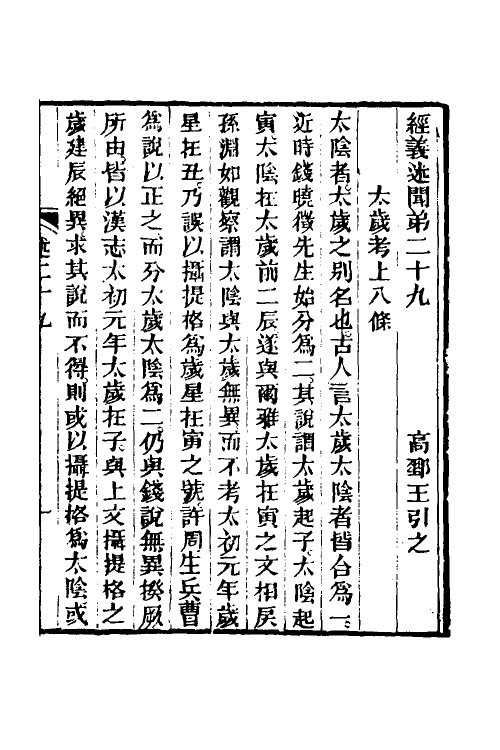 經義述聞弟二十九　　高郵王引之
太歲考上八條
太陰者太歲之別名也古人言太歲太陰者皆合爲一
近時錢曉徵先生始分爲二其說謂太歲起子太陰起
寅太陰在太歲前二辰遂與爾雅太歲在寅之文相戾
孫淵如觀察謂太陰與太歲無異而不考太初元年歲
星在丑乃誤以攝提格爲歲星在寅之號許周生兵曹
爲說以正之而分太歲太陰爲二仍與錢說無異揆厥
所由皆以漢志太初元年太歲在子與上文攝提格之
歲建辰絕異求其說而不得則或以攝提格爲太陰或
述二十九
一